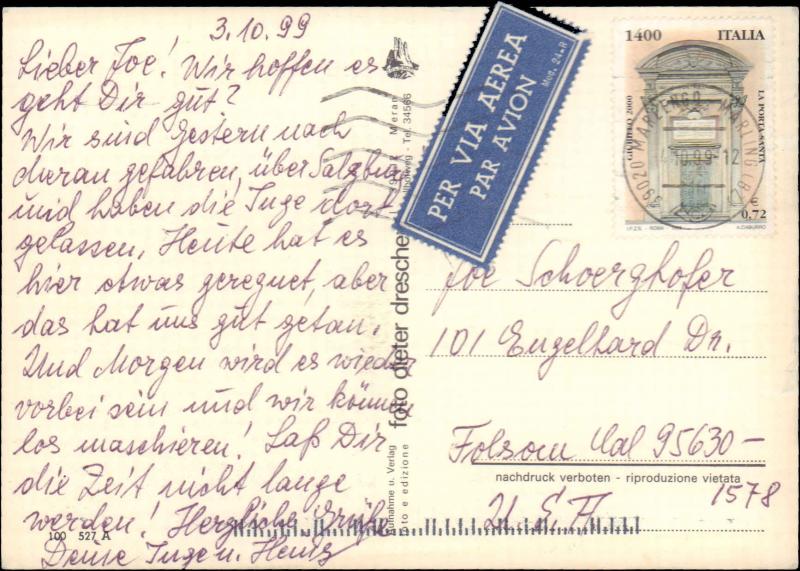 3.10.99
Lieber Joe! Wir hoffen es
geht Dir gut?
Wir sind Gestern nach
gefahren, über Salzburg
und haben die Inge dort
gelassen, Heute hat es
hier etwas geregnet, aber
das hat uns gut getan.
Und Morgen wird es wieder
vorbei sein und wir können
los maschieren! Laß Dir
die Zeit nicht lange
werden! Herzliche Grüße
Deine Inge u. Heinz
100 527 A
PER VIA AEREA
PAR AVION
Mod. 24-R
1400 ITALIA
GIUBILEO 2000
LA PORTA SANTA
€ 0,72
I.P.Z.S. - ROMA
39020 MARLENGO MARLING (BZ)
Meran
Tel. 34566
foto dieter drescher
Aufnahme u. Verlag
foto e edizione
Joe Schoerghofer
101 Engelhard Dr.
Folsom Cal 95630-
1578
nachdruck verboten - riproduzione vietata
U.S.A